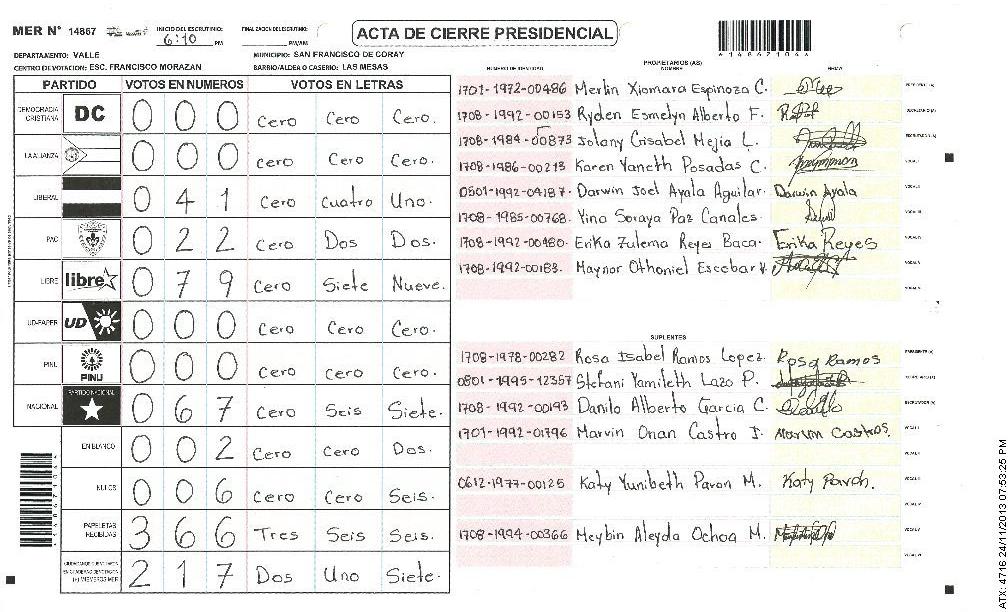 MER N° 14867
INICIO DEL ESCRUTINIO: 6:10 PM
FINALIZACION DEL ESCRUTINIO: PM/AM
ACTA DE CIERRE PRESIDENCIAL
*148671064
DEPARTAMENTO: VALLE
MUNICIPIO: SAN FRANCISCO DE CORAY
CENTRO DE VOTACION: ESC. FRANCISCO MORAZAN
BARRIO/ALDEA O CASERIO: LAS MESAS
PARTIDO VOTOS EN NUMEROS VOTOS EN LETRAS
DEMOCRACIA CRISTIANA DC 0 0 0 Cero Cero Cero.
LA ALIANZA 0 0 0 Cero Cero Cero.
LIBERAL 0 4 1 Cero Cuatro Uno.
PAC 0 2 2 Cero Dos Dos.
LIBRE libre 0 7 9 Cero Siete Nueve.
UD-FAPER UD 0 0 0 Cero Cero Cero.
PINU PINU 0 0 0 Cero Cero Cero.
NACIONAL PARTIDO NACIONAL 0 6 7 Cero Seis Siete.
EN BLANCO 0 0 2 Cero Cero Dos.
NULOS 0 0 6 Cero Cero Seis.
PAPELETAS RECIBIDAS 3 6 6 Tres Seis Seis.
2 1 7 Dos Uno Siete.
PROPIETARIOS (AS)
NUMERO DE IDENTIDAD NOMBRE FIRMA
1701-1972-00486 Merlin Xiomara Espinoza C.
1708-1992-00153 Ryden Esmelyn Alberto F.
1708-1984-00873 Jolany Crisabel Mejia L.
1708-1986-00213 Karen Yaneth Posadas C.
0501-1992-04187. Darwin Joel Ayala Aguilar. Darwin Ayala
1708-1985-00768. Yina Soraya Paz Canales.
1708-1992-00480. Erika Zulema Reyes Baca. Erika Reyes
1708-1992-00183. Maynor Othoniel Escobar
SUPLENTES
1708-1978-00282 Rosa Isabel Ramos Lopez. Rosa Ramos
0801-1995-12357 Stefani Yamileth Lazo P.
1708-1992-00193 Danilo Alberto Garcia C.
1701-1992-01796 Marvin Onan Castro J. Marvin Castros.
0612-1977-00125 Katy Yunibeth Pavon M. Katy Pavon.
1708-1994-00366 Meybin Aleyda Ochoa M.
ATX: 4716 24/11/2013 07:53:25 PM